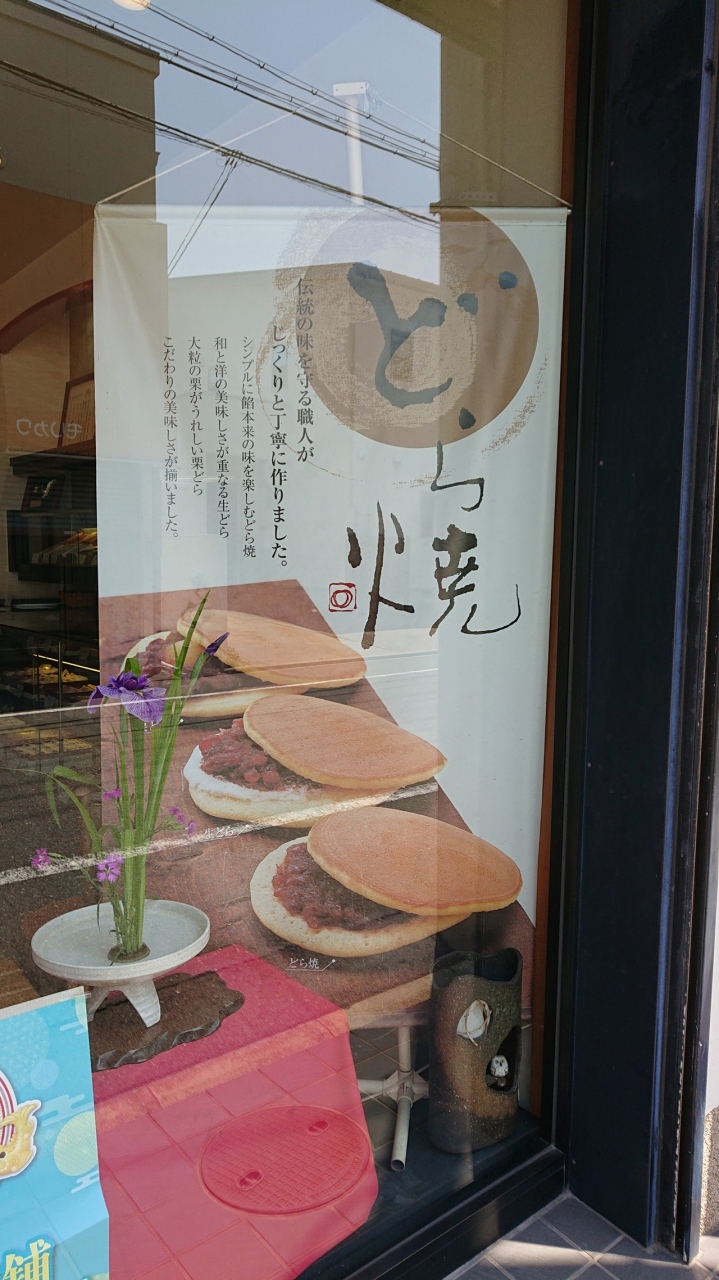 どら焼
伝統の味を守る職人が
じっくりと丁寧に作りました。
シンプルに餡本来の味を楽しむどら焼
和と洋の美味しさが重なる生どら
大粒の栗がうれしい栗どら
こだわりの美味しさが揃いました。
モリカワ
生どら
どら焼
舗